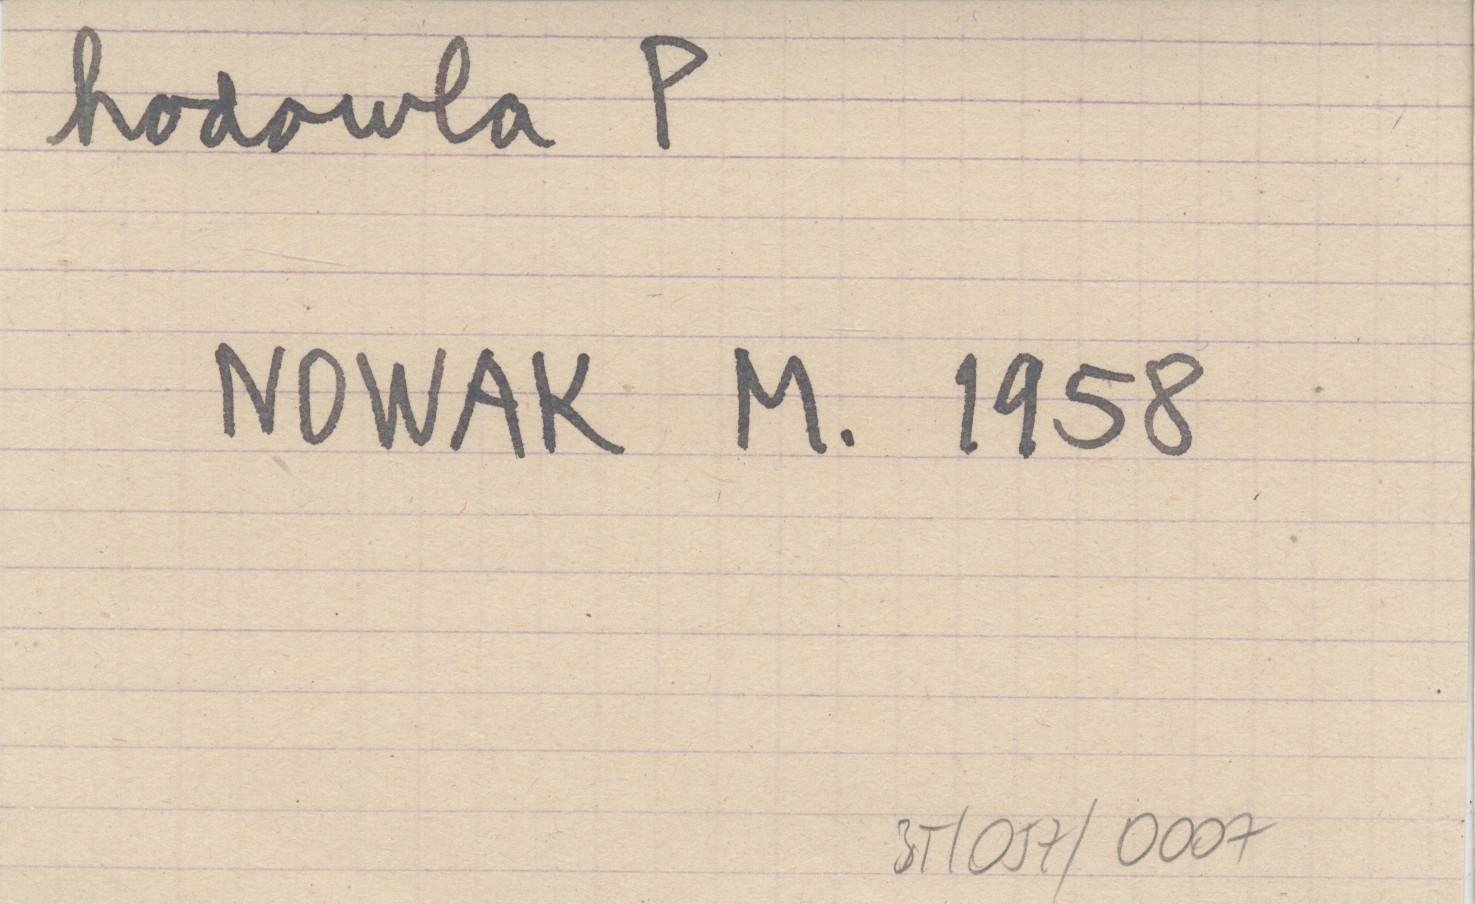 hodowla P
NOWAK M. 1958
BT/057/0007